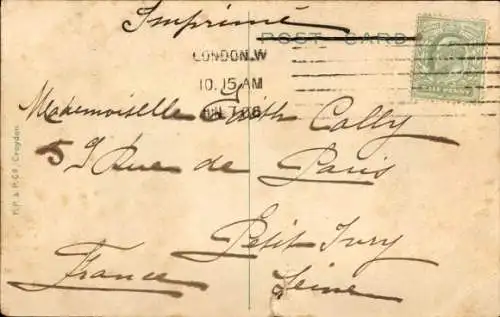 Imprimé
POST CARD
LONDON.W
10.15 AM
JN 7 06
Mademoiselle Edith Colly
59 Rue de Paris
Petit Ivry
France Seine
Croydon